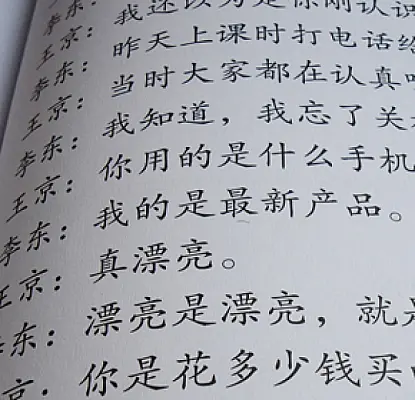 李东：
王京：我还以为是你刚认识
李东：昨天上课时打电话给
王京：当时大家都在认真
李东：我知道，我忘了关
王京：你用的是什么手机
李东：我的是最新产品。
王京：真漂亮。
李东：漂亮是漂亮，就是
京：你是花多少钱买